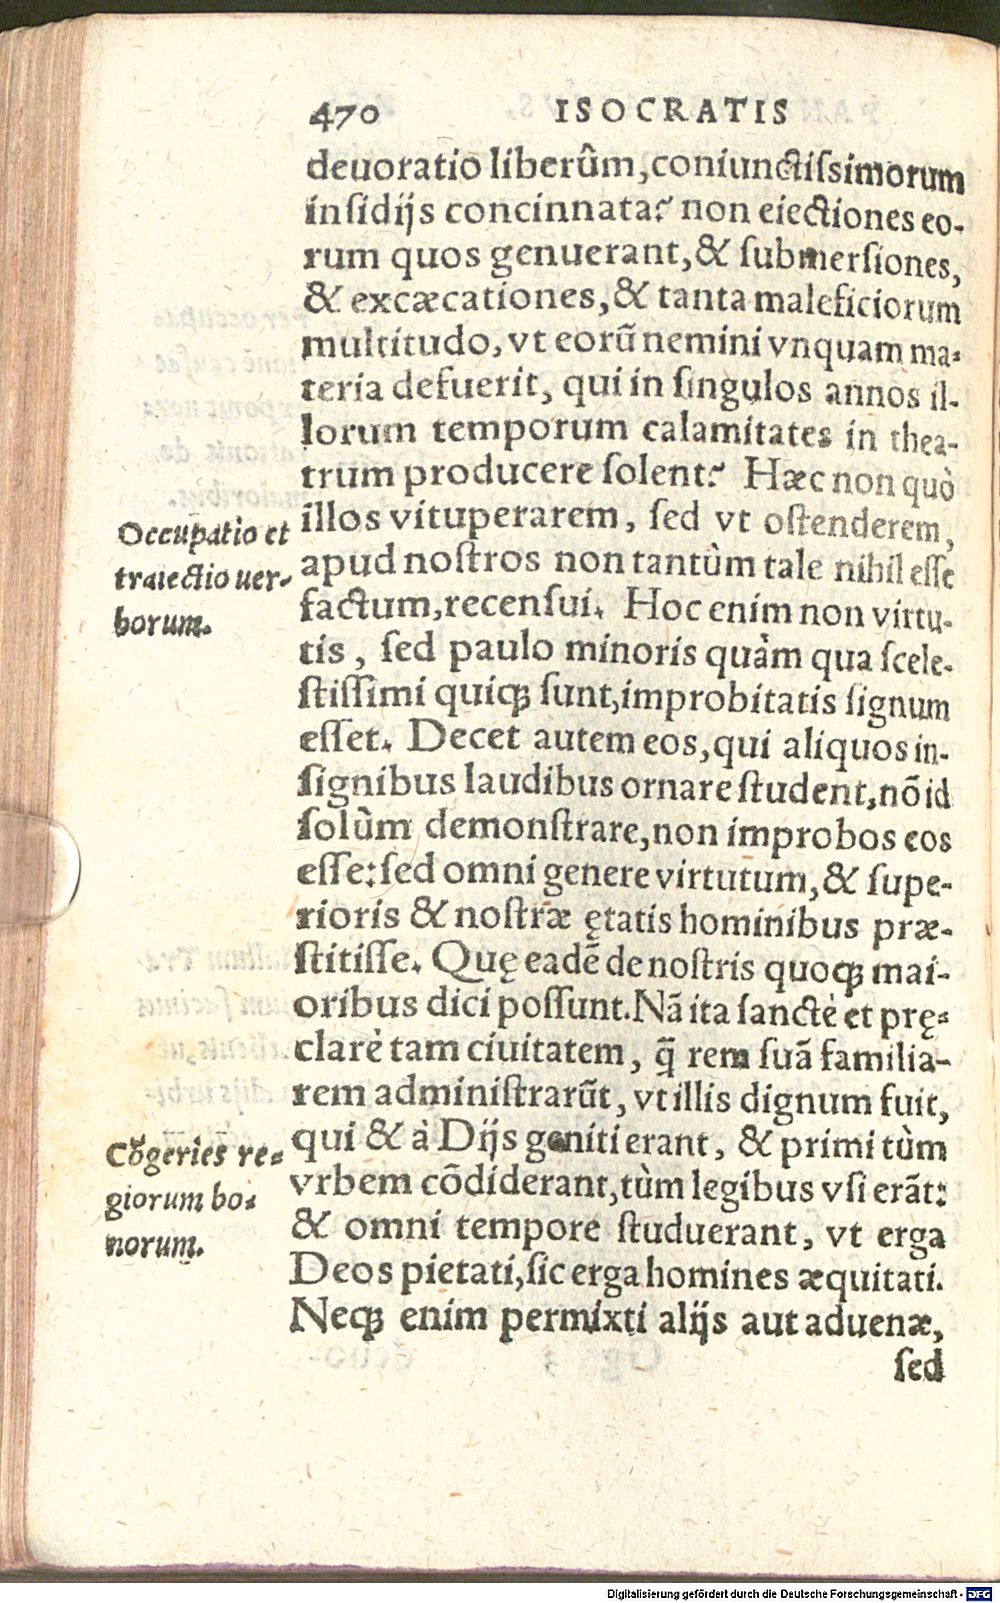 470 ISOCRATIS
deuoratio liberûm, coniunctiſsimorum
inſidijs concinnata? non eiectiones eo-
rum quos genuerant, & ſubmerſiones,
& excæcationes, & tanta maleficiorum
multitudo, vt eorū nemini vnquam ma-
teria defuerit, qui in ſingulos annos il-
lorum temporum calamitates in thea-
trum producere ſolent? Hæc non quò
illos vituperarem, ſed vt oſtenderem,
apud noſtros non tantùm tale nihil eſſe
factum, recenſui. Hoc enim non virtu-
tis, ſed paulo minoris quàm qua ſcele-
ſtiſſimi quiqꝫ ſunt, improbitatis ſignum
eſſet. Decet autem eos, qui aliquos in-
ſignibus laudibus ornare ſtudent, nō id
ſolùm demonſtrare, non improbos eos
eſſe: ſed omni genere virtutum, & ſupe-
rioris & noſtræ ętatis hominibus præ-
ſtitiſſe. Quę eadē de noſtris quoqꝫ mai-
oribus dici poſſunt. Nā ita ſanctè et prę-
clarè tam ciuitatem, q̃ rem ſuā familia-
rem adminiſtrarūt, vt illis dignum fuit,
qui & à Dijs geniti erant, & primi tùm
vrbem cōdiderant, tùm legibus vſi erāt:
& omni tempore ſtuduerant, vt erga
Deos pietati, ſic erga homines æquitati.
Neqꝫ enim permixti alijs aut aduenæ,
ſed
Occupatio et
traiectio uer-
borum.
Cōgeries re-
giorum bo-
norum.
Digitalisierung gefördert durch die Deutsche Forschungsgemeinschaft - DFG